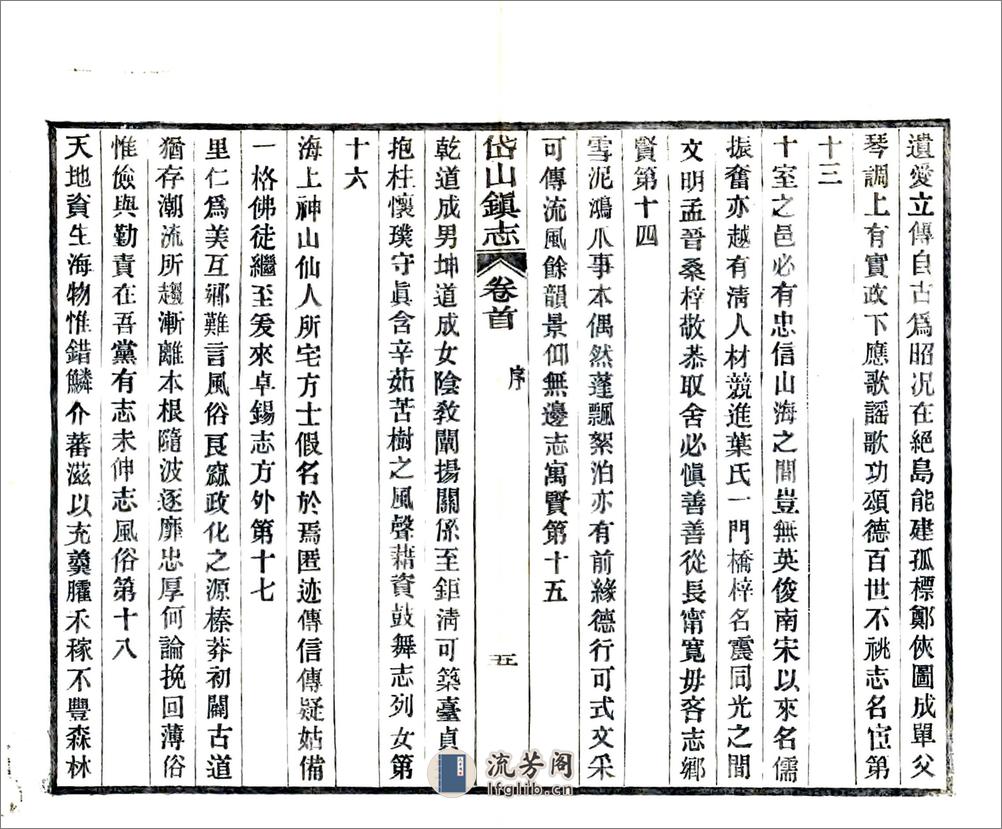 遺愛立傳自古爲昭况在絕島能建孤標鄭俠圖成單父
琴調上有實政下應歌謡歌功頌德百世不祧志名宦第
十三
十室之邑必有忠信山海之間豈無英俊南宋以來名儒
振奮亦越有淸人材競進葉氏一門橋梓名震同光之間
文明孟晉桑梓敬恭取舍必愼善善從長甯寬毋吝志鄉
賢第十四
雪泥鴻爪事本偶然蓬飄絮泊亦有前緣德行可式文采
可傳流風餘韻景仰無邊志寓賢第十五
岱山鎭志 卷首 序 五
乾道成男坤道成女陰敎闡揚關係至鉅淸可築臺貞
抱柱懷璞守眞含辛茹苦樹之風聲藉資鼓舞志列女第
十六
海上神山仙人所宅方士假名於焉匿迹傳信傳疑姑備
一格佛徒繼至爰來卓錫志方外第十七
里仁爲美互鄉難言風俗良窳政化之源榛莽初闢古道
猶存潮流所趨漸離本根隨波逐靡忠厚何論挽回薄俗
惟儉與勤責在吾黨有志未伸志風俗第十八
天地資生海物惟錯鱗介蕃滋以充羹臛禾稼不豐森林
流芳阁
lfglib.cn